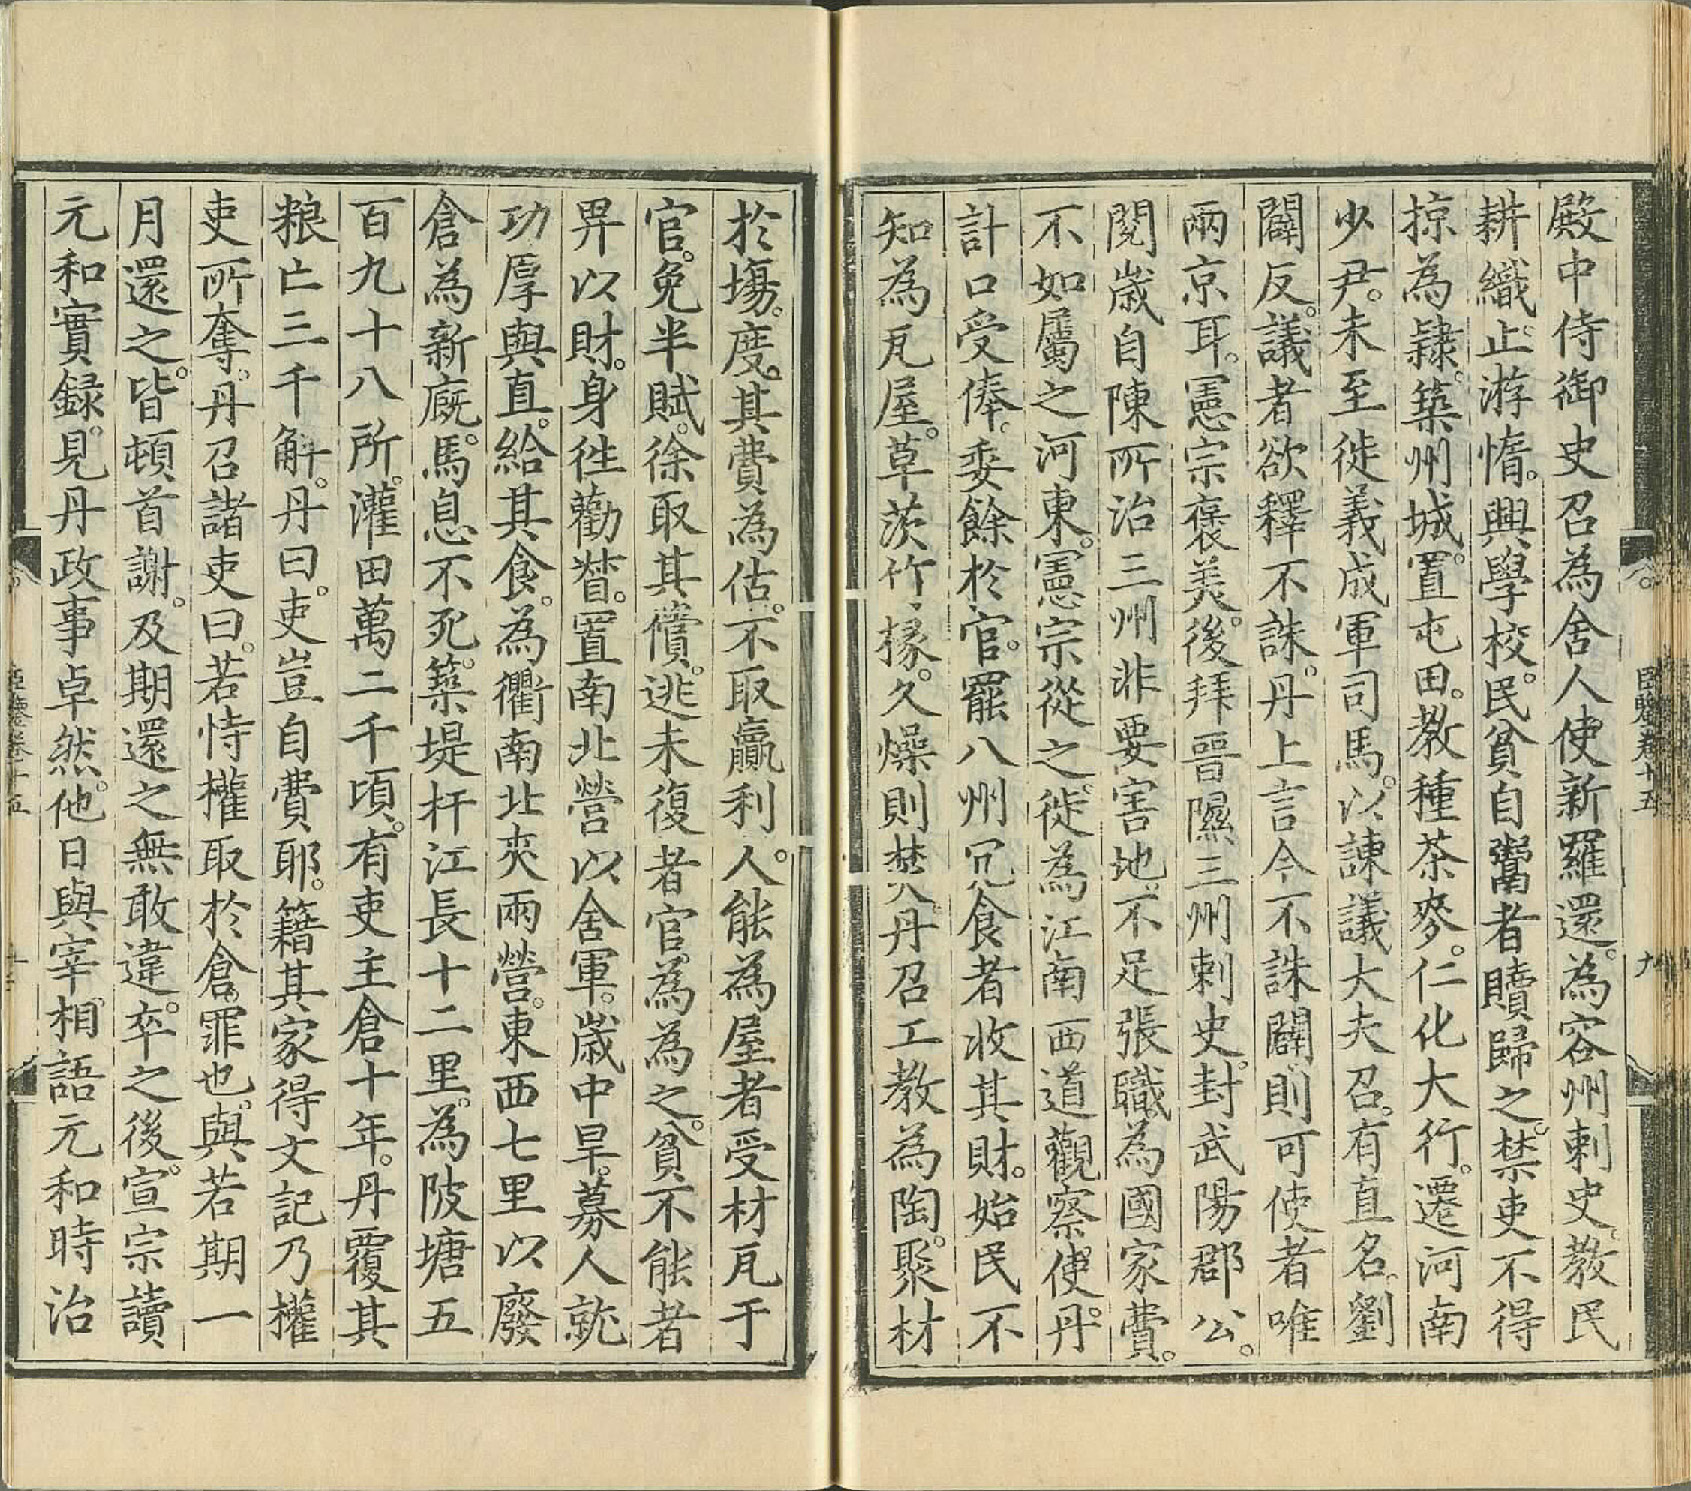 殿中侍御史召為舍人使新羅還。為容州刺史。教民
耕織。止游惰。興學校。民貧自鬻者贖歸之。禁吏不得
掠為隸。築州城。置屯田。教種茶麥。仁化大行。遷河南
少尹。未至徙義成軍司馬。以諫議大夫召。有直名。劉
闢反。議者欲釋不誅。丹上言今不誅闢則可使者唯
兩京耳。憲宗褒美後。拜晉隰三州刺史。封武陽郡公。
閱歲自陳所治三州非要害地。不足張職為國家費。
不如屬之河東。憲宗從之。徙為江南西道觀察使。丹
計口受俸。委餘於官。罷八州冗食者收其財。始民不
知為瓦屋。草茨竹椽。久燥則焚。丹召工教為陶。聚材
於場。度其費為估。不取贏利。人能為屋者受材瓦于
官。免半賦。徐取其償。逃未復者官為為之。貧不能者
畀以財。身往勸督。置南北營以舍軍。歲中旱。募人就
功厚與直。給其食。為衢南北夾兩營。東西七里以廢
倉為新廄。馬息不死。築堤扞江長十二里。為陂塘五
百九十八所。灌田萬二千頃。有吏主倉十年。丹覆其
粮亡三千斛。丹曰。吏豈自費耶。籍其家得文記乃權
吏所奪。丹召諸吏曰。若恃權取於倉。罪也。與若期一
月還之。皆頓首謝。及期還之無敢違。卒之後。宣宗讀
元和實録。見丹政事卓然。他日與宰相語元和時治
臣鑒卷十五
九